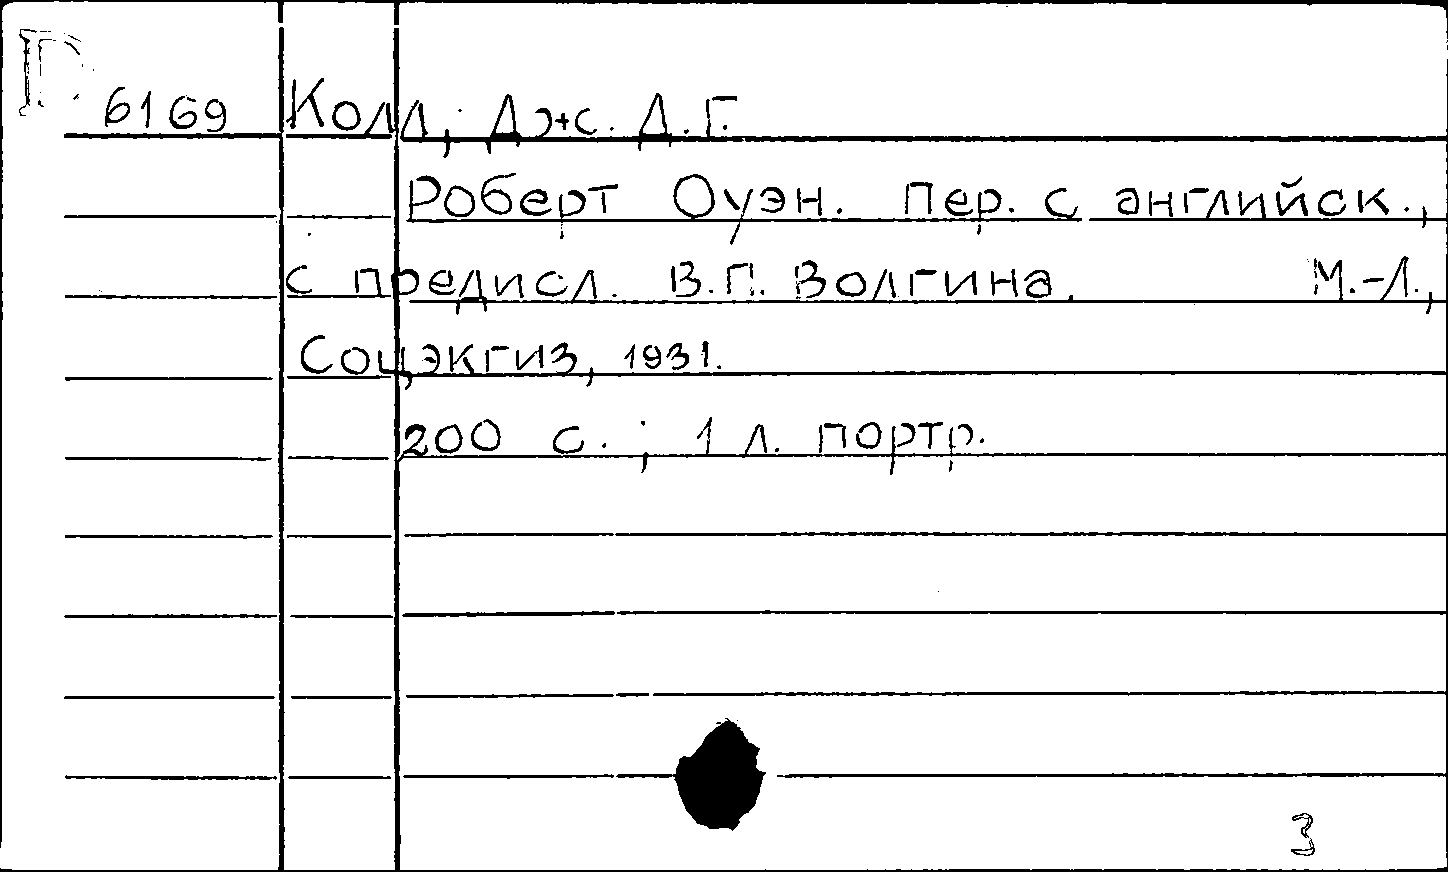 Г 6169 Колл, Дж. Д.Г.
Роберт Оуэн. Пер. с английск.,
с предисл. В.П. Волгина. М.-Л.,
Соцэкгиз, 1931.
200 с. ; 1 л. портр.
3